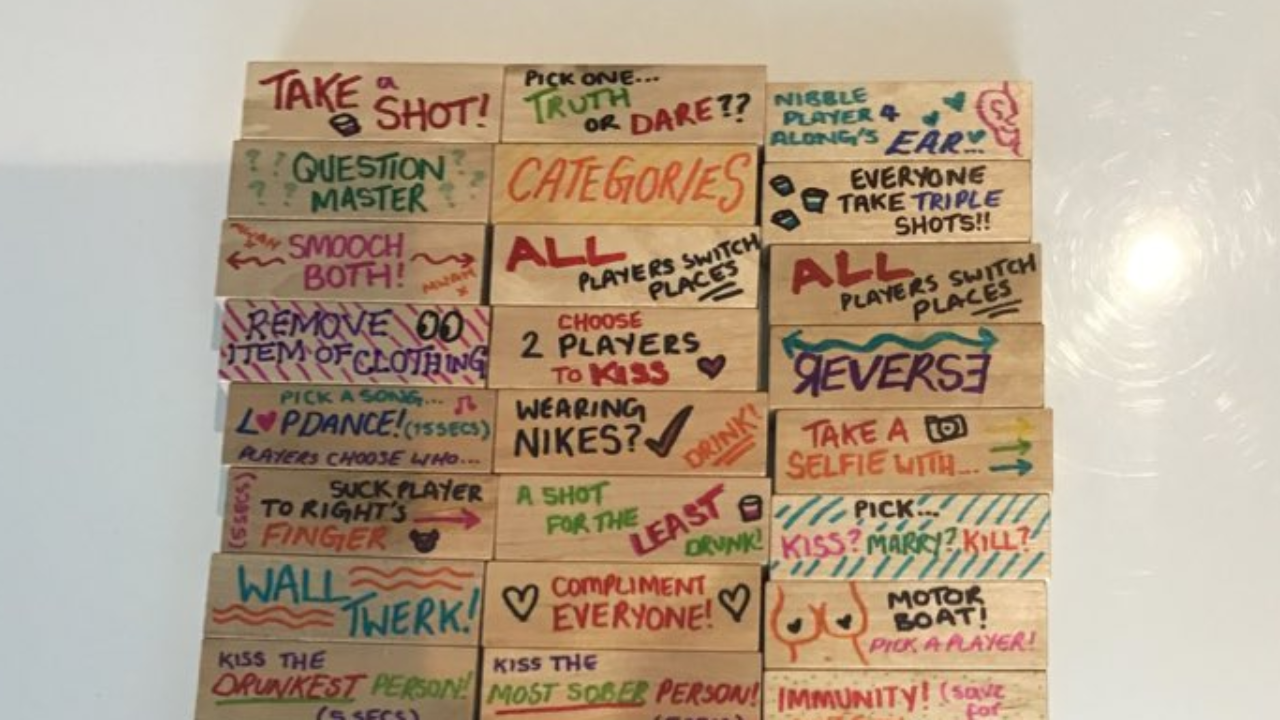 TAKE a
SHOT!
? ? QUESTION ?
? ? MASTER ?
MWAH
SMOOCH
BOTH!
MWAH
REMOVE
ITEM OF CLOTHING
PICK A SONG...
L♥PDANCE! (15SECS)
PLAYERS CHOOSE WHO...
(5SECS)
SUCK PLAYER
TO RIGHT'S
FINGER
WALL
TWERK!
KISS THE
DRUNKEST PERSON!
(5 SECS)
PICK ONE...
TRUTH
OR DARE??
CATEGORIES
ALL
PLAYERS SWITCH
PLACES
CHOOSE
2 PLAYERS
TO KISS
WEARING
NIKES?
DRINK!
A SHOT
FOR THE
LEAST
DRUNK!
COMPLIMENT
EVERYONE!
KISS THE
MOST SOBER PERSON!
NIBBLE
PLAYER 4
ALONG'S EAR...
EVERYONE
TAKE TRIPLE
SHOTS!!
ALL
PLAYERS SWITCH
PLACES
REVERSE
TAKE A
SELFIE WITH...
PICK...
KISS? MARRY? KILL?
MOTOR
BOAT!
PICK A PLAYER!
IMMUNITY! (save
for